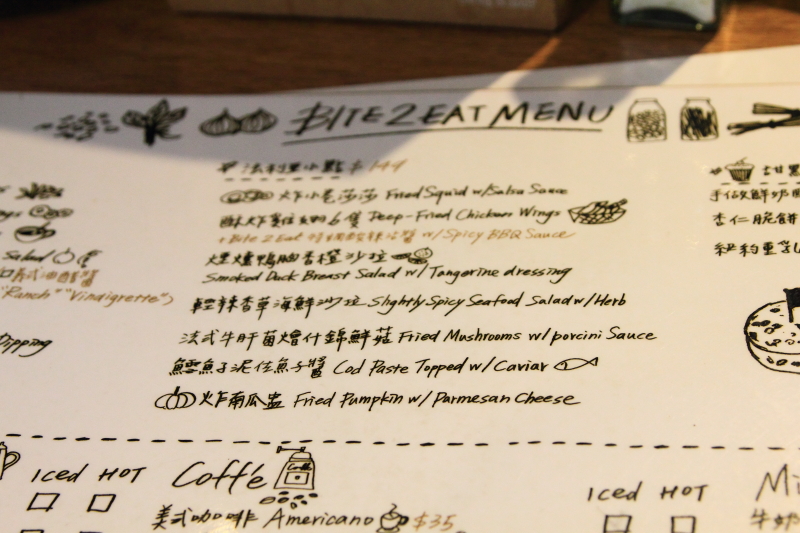 BITE 2 EAT MENU
法利里小點 $149
炸小卷莎莎 Fried Squid w/Salsa Sauce
酥炸雞翅6隻 Deep-Fried Chicken Wings
+Bite 2 Eat 特調酸辣沾醬 w/Spicy BBQ Sauce
煙燻鴨胸香橙沙拉
Smoked Duck Breast Salad w/Tangerine dressing
輕辣香草海鮮沙拉 Slightly Spicy Seafood Salad w/Herb
法式牛肝菌燴什錦鮮菇 Fried Mushrooms w/porcini Sauce
鱈魚子泥佐魚子醬 Cod Paste Topped w/Caviar
炸南瓜盅 Fried Pumpkin w/Parmesan Cheese
Salad
"Ranch" "Vinaigrette")
Dipping
甜點
手做鮮奶
杏仁脆餅
紐約重乳
Iced HOT
Coffée
美式咖啡 Americano $35
Iced HOT
Mi
牛奶